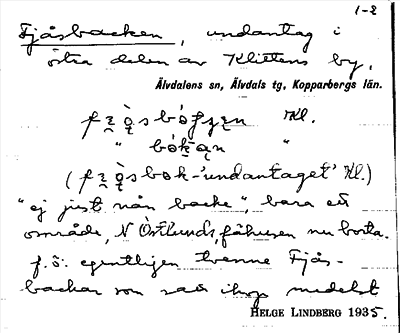 1-2
Fjåsbacken, undantag i
östra delen av Klittens by,
Älvdalens sn, Älvdals tg, Kopparbergs län.
Kl.
" "
'undantaget' Kl.)
"ej just nån backe", bara ett
område, N Östlunds, fähusen nu borta.
f. ö. egentligen tvenne Fjås-
backar som satt ihop medelst
HELGE LINDBERG 1935.